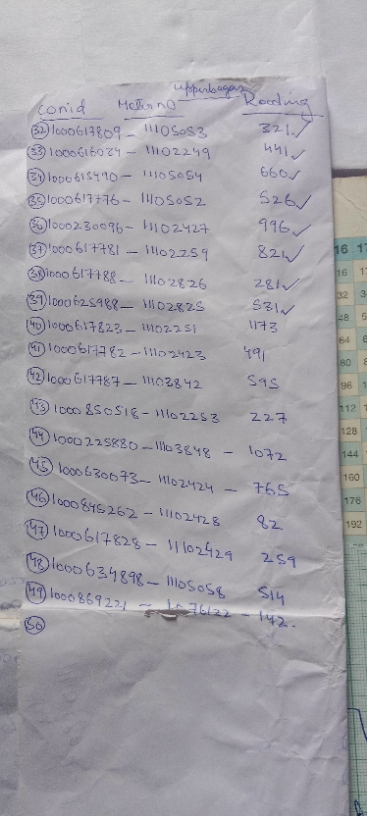 Upperbagar
Con id Metter no Reading
32) 1000617809 - 11105053 321 ✓
33) 1000616034 - 11102249 441 ✓
34) 1000615490 - 11105054 660 ✓
35) 1000617776 - 11105052 526 ✓
36) 1000230096 - 11102427 996 ✓
37) 1000617781 - 11102259 821 ✓
38) 1000617788 - 11102826 281 ✓
39) 1000625988 - 11102825 531 ✓
40) 1000617823 - 11102251 1173
41) 1000617782 - 11102423 491
42) 1000617787 - 11103842 595
43) 1000850518 - 11102253 227
44) 1000225880 - 11103848 - 1072
45) 1000630673 - 11102424 - 765
46) 1000845262 - 11102428 82
47) 1000617828 - 11102429 259
48) 1000634898 - 11105058 514
49) 1000869221 - 76122 - 142.
50)
16 17
16
32
48
64
80
96
112
128
144
160
176
192